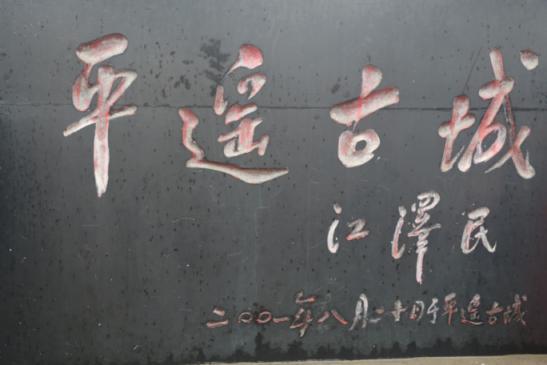 平遥古城
江澤民
二〇〇一年八月二十日于平遥古城